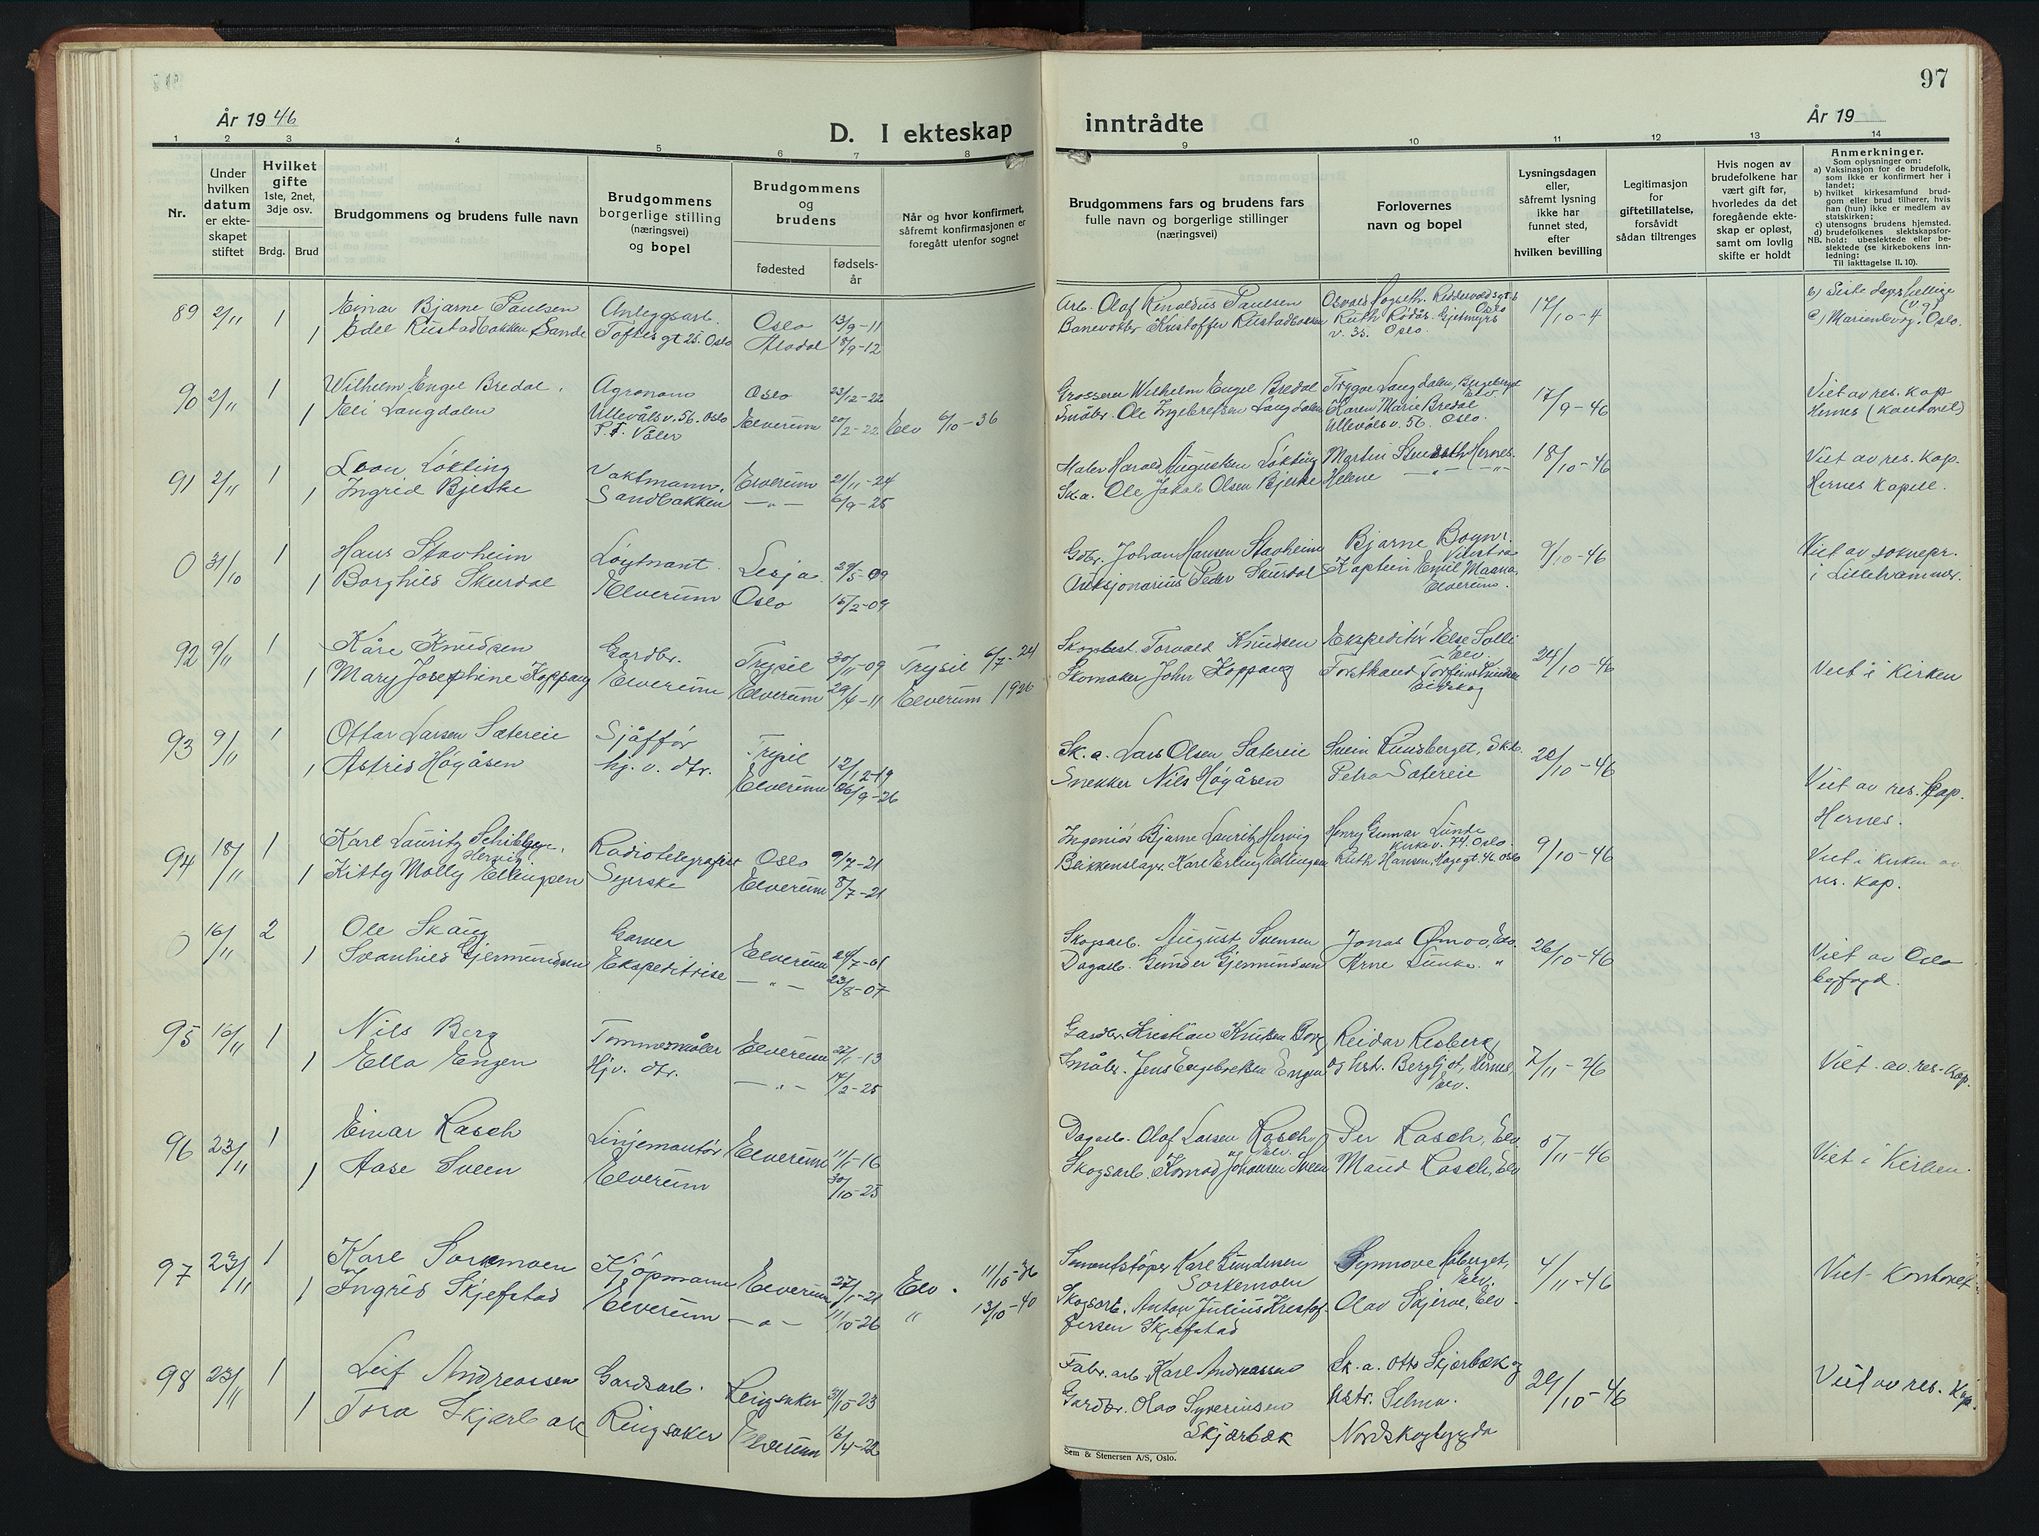 År 1946
D. I ekteskap
1 2 3 4 5 6 7 8
Nr.
Under hvilken datum er ekteskapet stiftet
Hvilket gifte
1ste, 2net, 3dje osv.
Brdg. Brud
Brudgommens og brudens fulle navn
Brudgommens borgerlige stilling (næringsvei) og bopel
Brudgommens og brudens
fødested
fødselsår
Når og hvor konfirmert, såfremt konfirmasjonen er foregått utenfor sognet
89 2/11 1 Einar Bjarne Paulsen Anleggsarb. Oslo 13/9-11
1 Edel Rustadbakken Sande Toftes gt 25. Oslo Alvdal 18/9-12
90 2/11 1 Wilhelm Engel Bredal. Agronom Oslo 23/2-22
1 Eli Langdalen Ullevålsv. 56. Oslo Elverum 20/2-22 Elv 6/10-36
P.T. Våler
91 2/11 1 Løkting Vaktmann, Elverum 21/11-24
1 Ingrid Bjerke Sandbakken -"- 6/9-25
0 31/10 1 Hans Stavheim Løytnant. Lesja 29/5-09
1 Borghild Skurdal Elverum Oslo 15/2-09
92 9/11 1 Kåre Knudsen Gardbr. Trysil 30/11-09 Trysil 6/7-24
1 Mary Josephine Koppang Elverum Elverum 29/6-11 Elverum 1926
93 9/11 1 Ottar Larsen Sætereie Sjåffør Trysil 12/12-19
1 Astrid Høgåsen hj. v. dtr. Elverum 26/9-26
94 18/11 1 Karl Lauritz Hervig Radiotelegrafist Oslo 9/7-21
1 Kitty Molly Ellingsen Syerske Elverum 8/7-21
0 16/11 2 Ole Skaug Garver Elverum 24/7-01
1 Svanhild Gjermundsen Ekspeditrise -"- 23/8-07
95 16/11 1 Nils Berg Tømmermåler Elverum 27/1-13
1 Ella Engen Hjv. dtr. -"- 14/2-25
96 23/11 1 Einar Rasch Linjemontør Elverum 11/1-16
1 Aase Sveen Elverum 30/10-25
97 23/11 1 Karl Sorkmoen Kjøpmann Elverum 27/1-21 Elv. 11/10-36
1 Ingrid Skjefstad Elverum -"- 11/10-26 " 13/10-40
98 23/11 1 Leif Andreassen Gardsarb. Ringsaker 31/10-23
1 Tora Skjærbæk Ringsaker Elverum 16/4-22
97
inntrådte
År 19
9 10 11 12 13 14
Brudgommens fars og brudens fars fulle navn og borgerlige stillinger (næringsvei)
Forlovernes navn og bopel
Lysningsdagen eller, såfremt lysning ikke har funnet sted, efter hvilken bevilling
Legitimasjon for giftetillatelse, forsåvidt sådan tiltrenges
Hvis nogen av brudefolkene har vært gift før, hvorledes da det foregående ekteskap er opløst, samt om lovlig skifte er holdt
Anmerkninger.
Som oplysninger om:
a) Vaksinasjon for de brudefolk, som ikke er konfirmert her i landet;
b) hvilket kirkesamfund brudgom eller brud tilhører, hvis han (hun) ikke er medlem av statskirken;
c) utensogns brudens hjemsted.
d) brudefolkenes slektskapsforhold: ubeslektede eller beslektede (se kirkebokens innledning:
NB. Til iakttagelse II. 10).
Arb. Olaf Rinoldus Paulsen Osvald Riddervoldsgt 6 Oslo 17/10-4 b) Siste dagers hellige
Banevokter Kristoffer Rustadbakken Ruth Gjetmyrs v. 35. Oslo. c) Marienborg, Oslo.
Grosserer Wilhelm Engel Bredal Trygve Langdalen, Elv 17/9-46 Viet av res. kap
Småbr. Ole Ingebretsen Langdalen Karen Marie Bredal Hernes (kontoret)
Ullevålsv. 56. Oslo
Maler Harald Augustsen Løkting Martin Hernes. 18/10-46 Viet av res. kap.
Sk.a. Ole Jakob Olsen Bjerke Helene -"- -"- Hernes kapell.
Gdbr. Johan Hansen Stavheim Bjarne 9/10-46 Viet av sognepr.
Auksjonarius Peder Skurdal Kaptein Emil i Lillehammer.
Elverum.
Skogbest. Torvald Knudsen Ekspeditør Else Solli Elv. 25/10-46 Viet i Kirken
Skomaker John Koppang Forstkand Torfinn Knudsen Eidskog
Sk. a. Lars Olsen Sætereie Svein 22/10-46 Viet av res. kap.
Snekker Nils Høgåsen Petra Sætereie Hernes.
Ingeniør Bjarne Lauritz Hervig Henry Gunnar Lunde Kirkev. 74. Oslo 9/10-46 Viet i kirken av
Blikkenslager. Karl Erling Ellingsen Ruth Hansen, Oslo res. kap.
Skogsarb. August Svensen Jonas Ømoo, Elv. 26/10-46 Viet av Oslo
Dagarb. Gunder Gjermundsen Arne " byfogd.
Gardbr. Kristian Knutsen Berg Reidar Risberg 7/11-46 Viet av. res. kap.
Småbr. Jens Engebretsen Engen og hstr. Bergljot, Hernes, Elv.
Dagarb. Olaf Larsen Rasch, Elv. Per Rasch, Elv 5/11-46 Viet i Kirken.
Skogsarb. Konrad Johansen Sveen Maud Rasch, Elv
Sementstøper Karl Gundersen Sorkmoen Synnøve Åberget, Elv. 4/11-46 Viet - kontoret
Skogsarb. Anton Julius Kristoffersen Skjefstad Olav Skjerve, Elv.
Fabr. arb. Karl Andreassen Sk. a. Otto Skjærbæk og 29/10-46 Viet av res. kap.
Gardbr. Olav Syverinsen Skjærbæk hstr. Selma. Nordskogbygda
Sem & Stenersen A/S, Oslo.